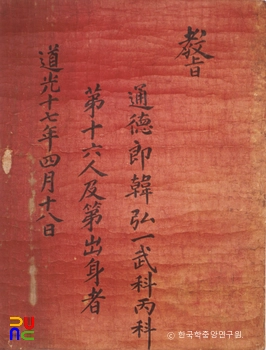 教旨
通德郎韓弘一武科丙科
第十六人及第出身者
道光十七年四月十八日
ⓒ 한국학중앙연구원